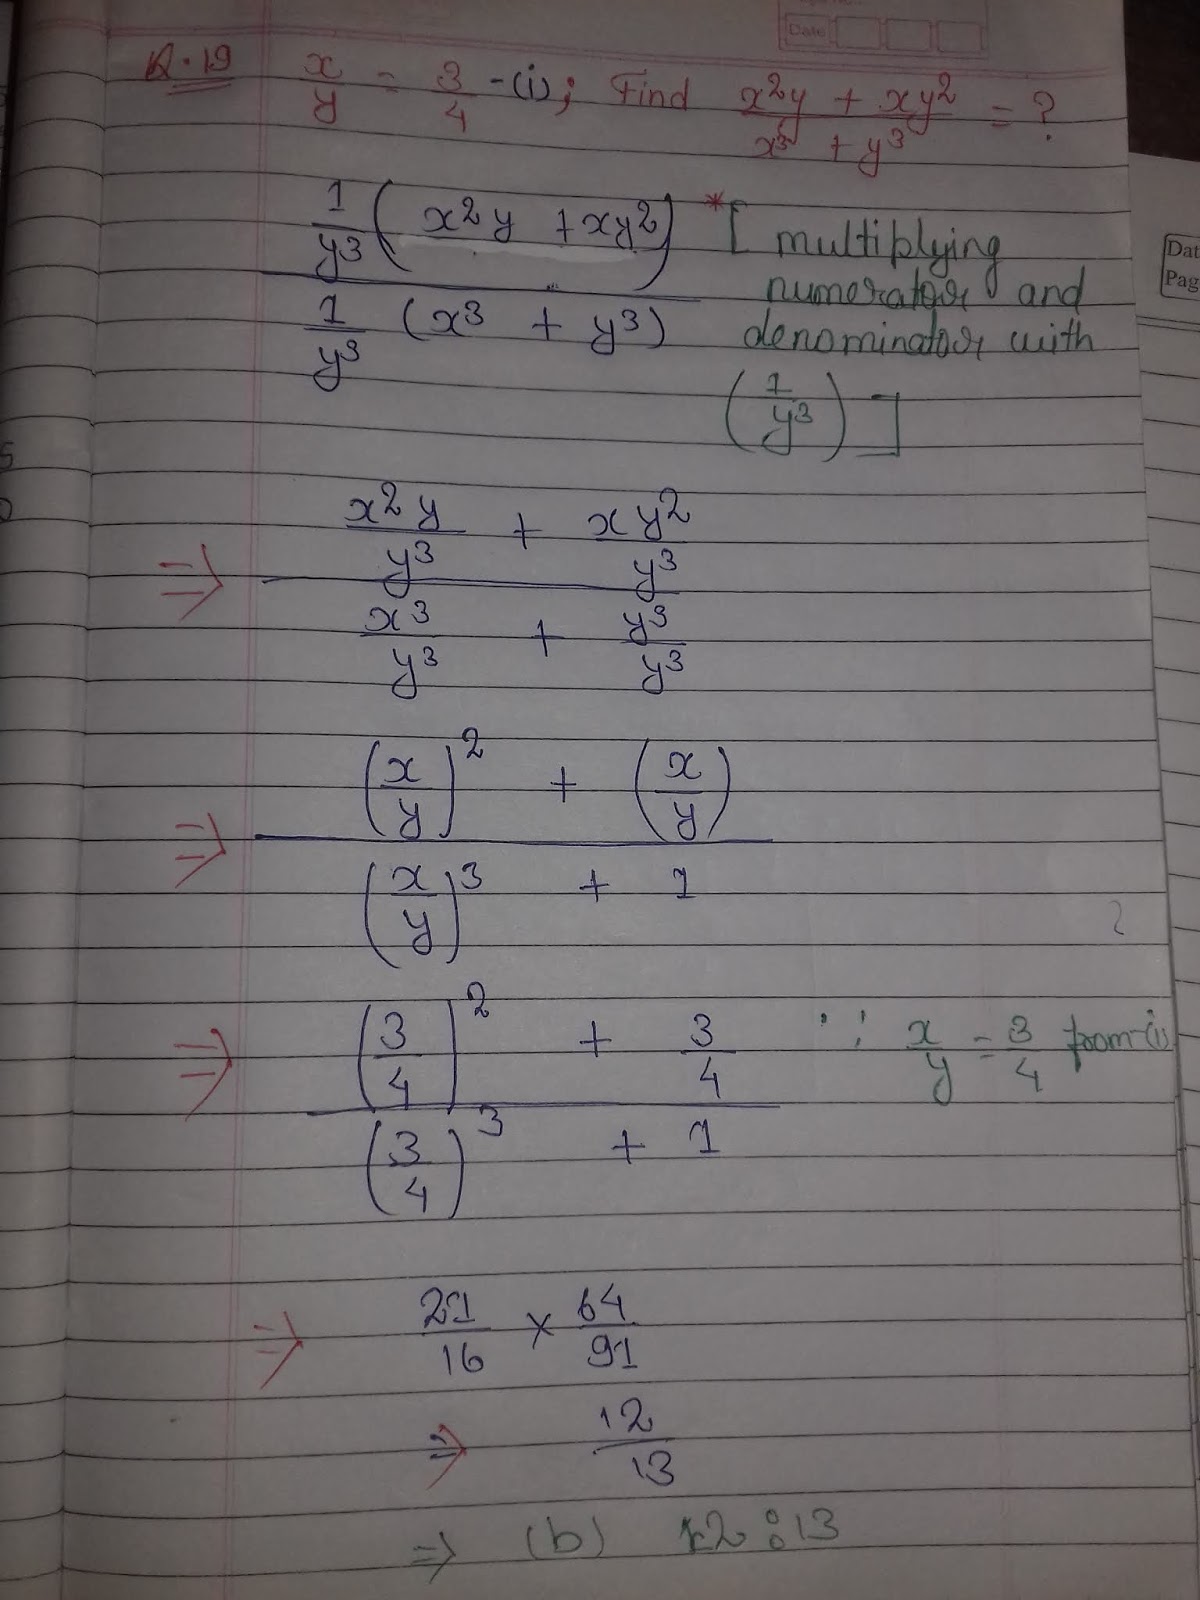 Date
Q.19 x/y = 3/4 -(i); Find (x²y + xy²)/(x³ + y³) = ?
1/y³ (x²y + xy²) * [ multiplying
numerator and
1/y³ (x³ + y³) denominator with
(1/y³) ]
⇒ x²y/y³ + xy²/y³
x³/y³ + y³/y³
⇒ (x/y)² + (x/y)
(x/y)³ + 1
⇒ (3/4)² + 3/4 ∵ x/y = 3/4 from -(i)
(3/4)³ + 1
⇒ 21/16 × 64/91
⇒ 12/13
⇒ (b) 12:13
Dat
Pag